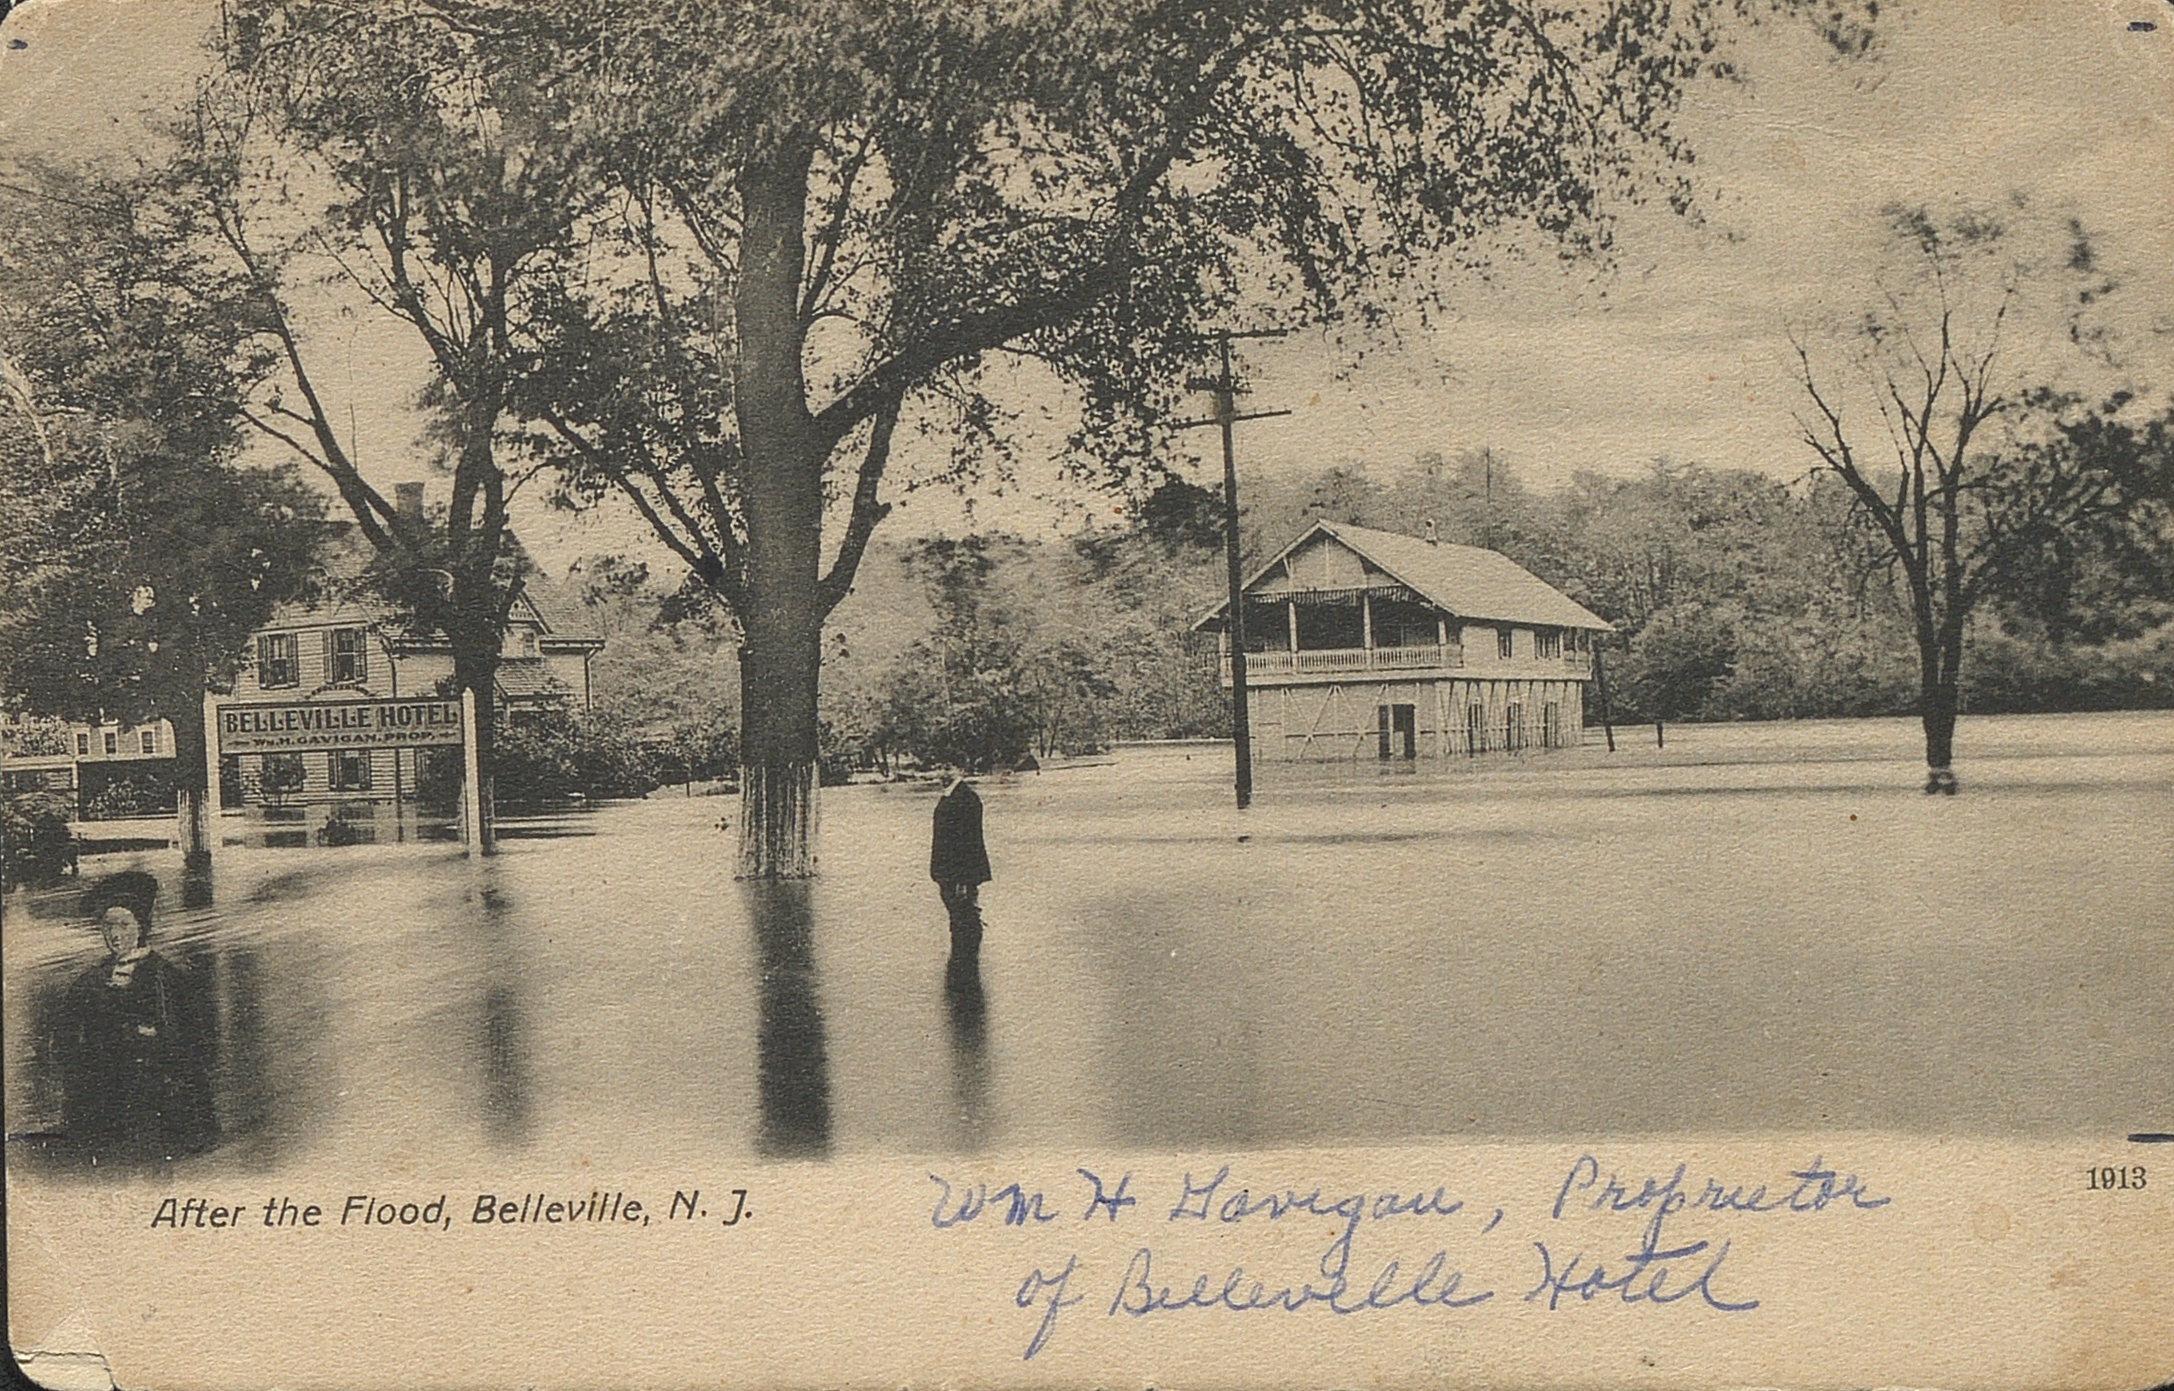 BELLEVILLE HOTEL
Wm. H. GAVIGAN, PROP.
After the Flood, Belleville, N. J.
Wm H Gavigan, Proprietor
of Belleville Hotel
1913